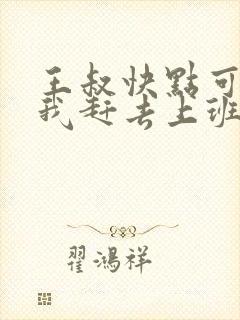 王叔快點可
我赶去上班
翟鴻祥